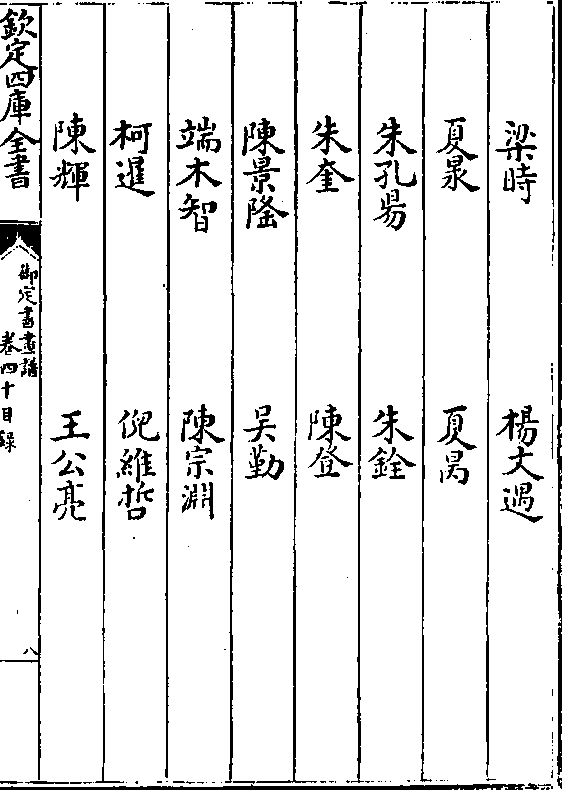 梁時 楊文遇
夏昺 夏昺
朱孔昜 朱銓
朱奎 陳登
陳景隆 吴勤
端木智 陳宗淵
柯暹 倪維哲
陳輝 王公亮
欽定四庫全書
御定書畫譜
卷四十目録
八